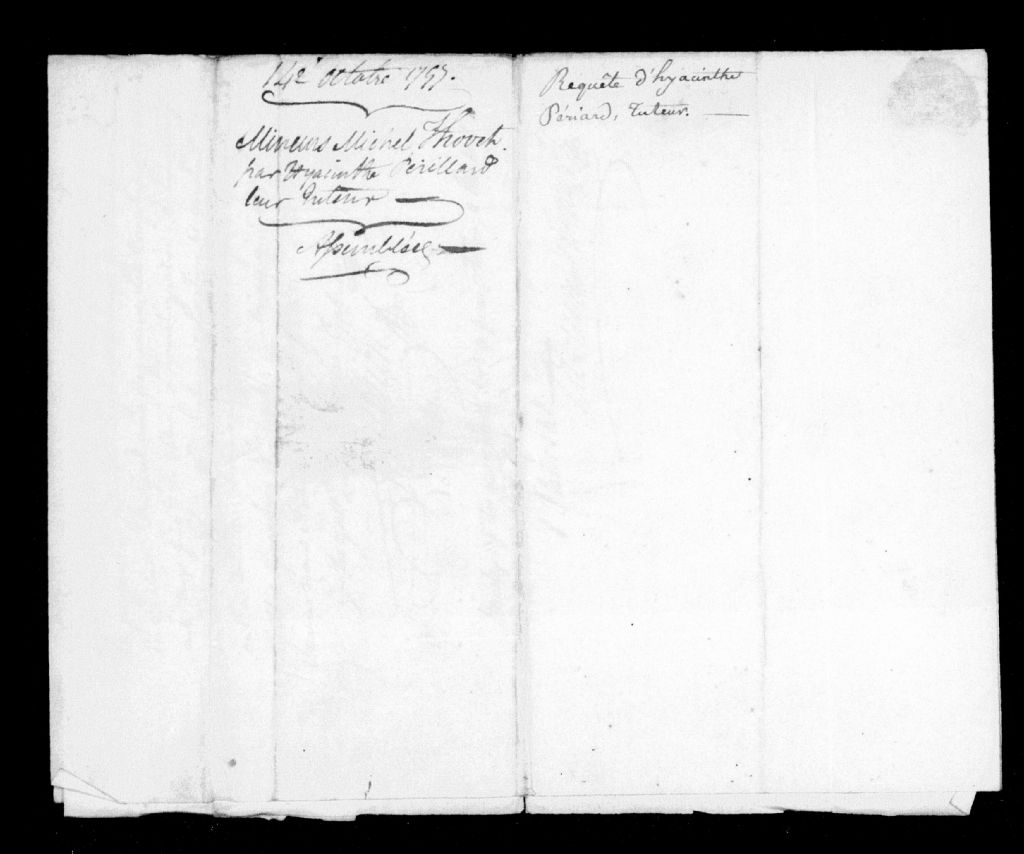 142 octobre 1797.
Mineurs Michel
par Hyacinthe Périllard
leur Tuteur
Assemblée
Requête d'hyacinthe
Périard, Tuteur.